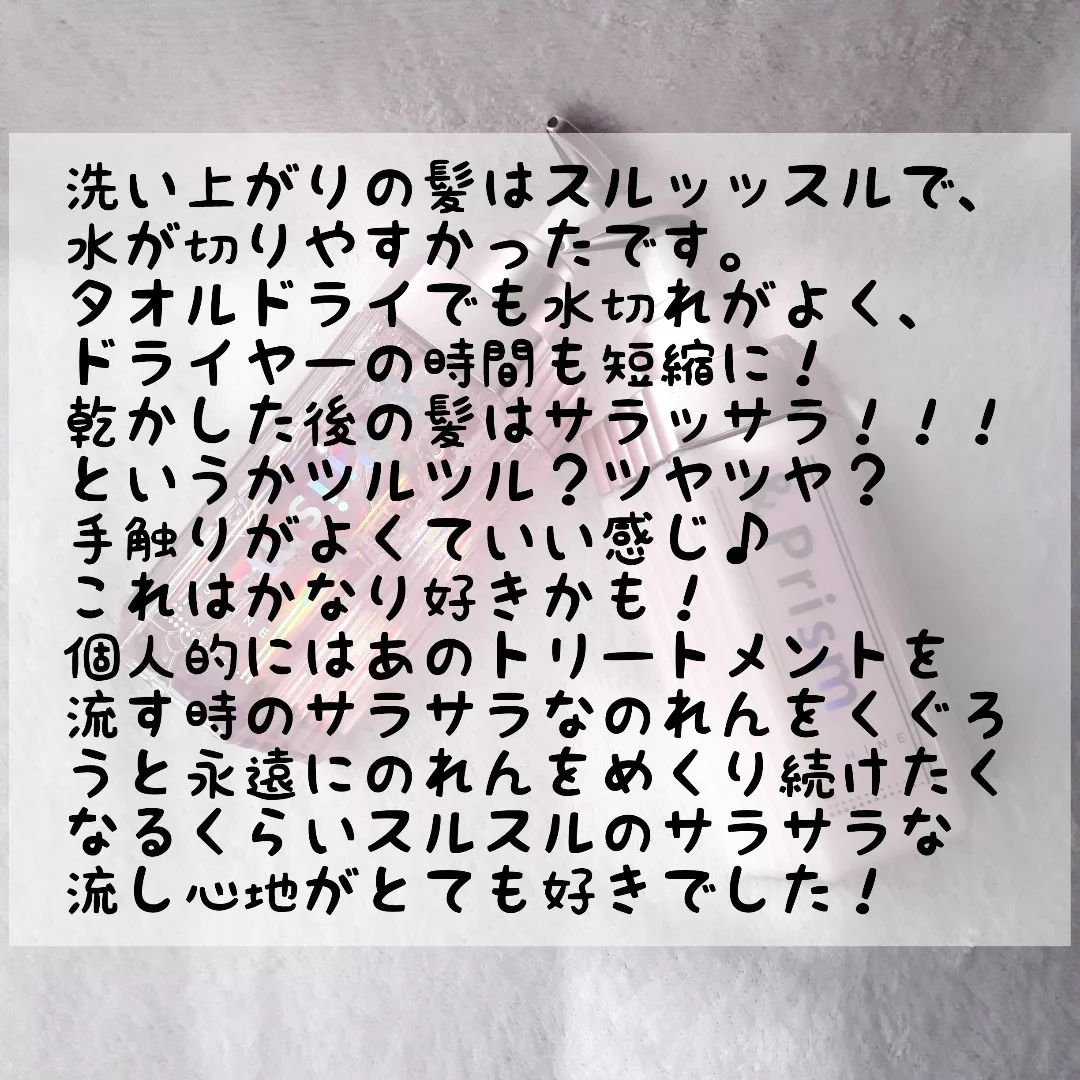 洗い上がりの髪はスルッッスルで、
水が切りやすかったです。
タオルドライでも水切れがよく、
ドライヤーの時間も短縮に！
乾かした後の髪はサラッサラ！！！
というかツルツル？ツヤツヤ？
手触りがよくていい感じ♪
これはかなり好きかも！
個人的にはあのトリートメントを
流す時のサラサラなのれんをくぐろ
うと永遠にのれんをめくり続けたく
なるくらいスルスルのサラサラな
流し心地がとても好きでした！
& Prism